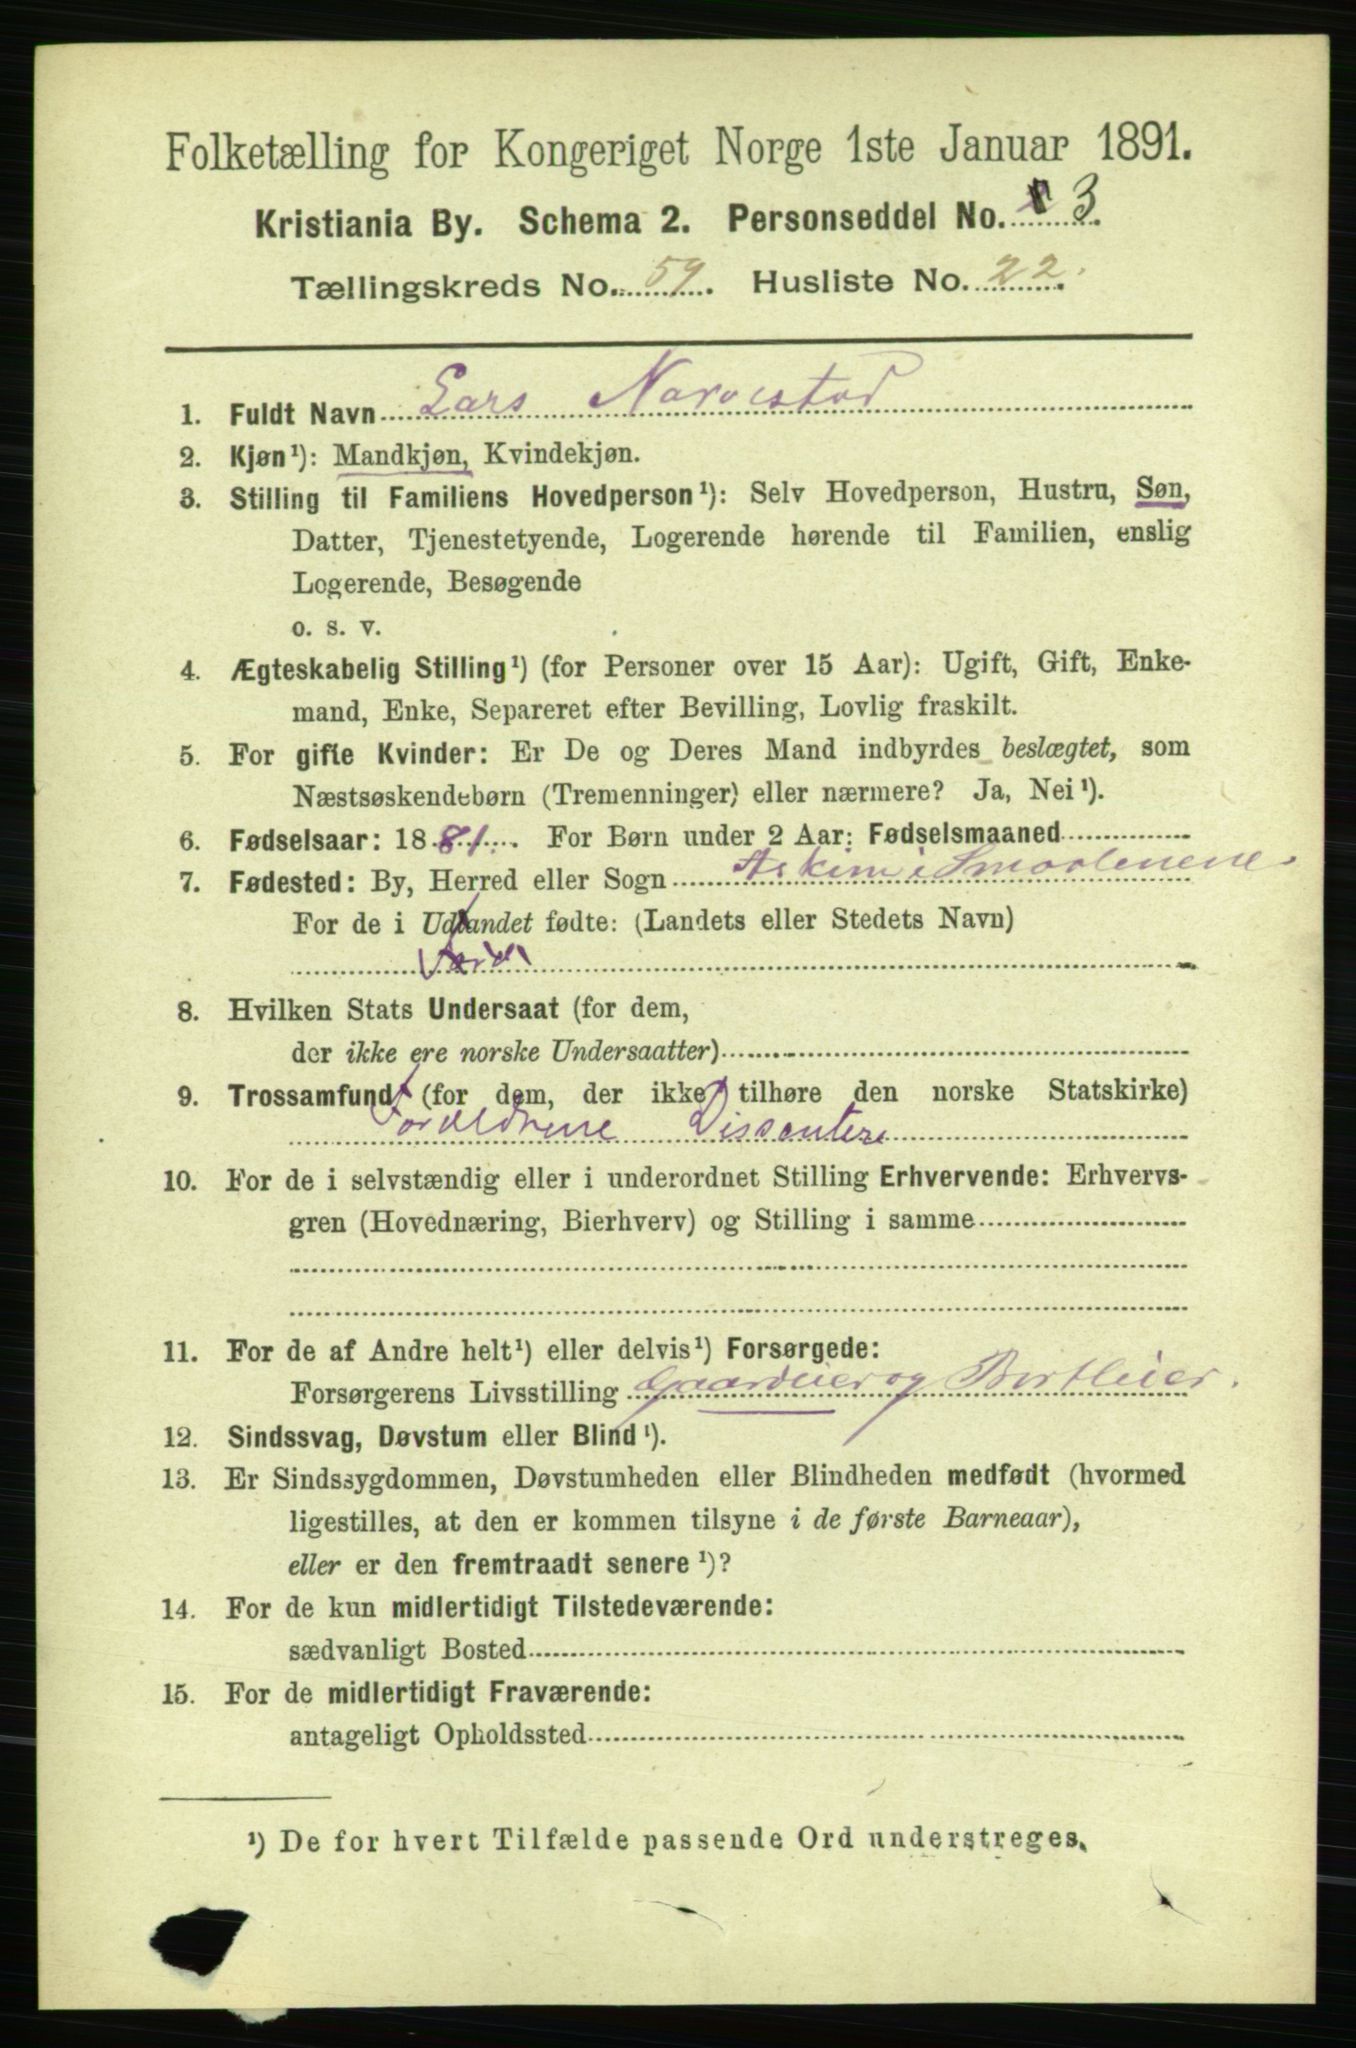 Folketælling for Kongeriget Norge 1ste Januar 1891.
Kristiania By. Schema 2. Personseddel No. 3.
Tællingskreds No. 59. Husliste No. 22.
1. Fuldt Navn Lars Narvestad
2. Kjøn¹): Mandkjøn, Kvindekjøn.
3. Stilling til Familiens Hovedperson¹): Selv Hovedperson, Hustru, Søn,
Datter, Tjenestetyende, Logerende hørende til Familien, enslig
Logerende, Besøgende
o. s. v.
4. Ægteskabelig Stilling¹) (for Personer over 15 Aar): Ugift, Gift, Enke-
mand, Enke, Separeret efter Bevilling, Lovlig fraskilt.
5. For gifte Kvinder: Er De og Deres Mand indbyrdes beslægtet, som
Næstsøskendebørn (Tremenninger) eller nærmere? Ja, Nei¹).
6. Fødselsaar: 1881. For Børn under 2 Aar: Fødselsmaaned
7. Fødested: By, Herred eller Sogn Askim i Smaalenene
For de i Udlandet fødte: (Landets eller Stedets Navn)
8. Hvilken Stats Undersaat (for dem,
der ikke ere norske Undersaatter)
9. Trossamfund (for dem, der ikke tilhøre den norske Statskirke)
Forældrene Dissentere
10. For de i selvstændig eller i underordnet Stilling Erhvervende: Erhvervs-
gren (Hovednæring, Bierhverv) og Stilling i samme
11. For de af Andre helt¹) eller delvis¹) Forsørgede:
Forsørgerens Livsstilling Gaardeier og
12. Sindssvag, Døvstum eller Blind¹).
13. Er Sindssygdommen, Døvstumheden eller Blindheden medfødt (hvormed
ligestilles, at den er kommen tilsyne i de første Barneaar),
eller er den fremtraadt senere¹)?
14. For de kun midlertidigt Tilstedeværende:
sædvanligt Bosted
15. For de midlertidigt Fraværende:
antageligt Opholdssted
¹) De for hvert Tilfælde passende Ord understreges.